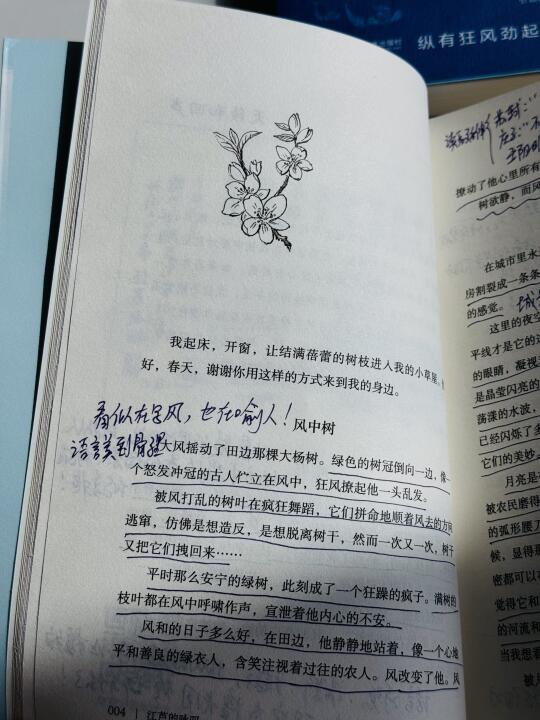 纵有狂风劲起
我起床，开窗，让结满蓓蕾的树枝进人我的小草屋。
好，春天，谢谢你用这样的方式来到我的身边。
看似在写风，也在喻人！
语言美到骨髓
风中树
大风摇动了田边那棵大杨树。绿色的树冠倒向一边，像一
个怒发冲冠的古人伫立在风中，狂风撩起他一头乱发。
被风打乱的树叶在疯狂舞蹈，它们拼命地顺着风去的方向
逃窜，仿佛是想造反，是想脱离树干，然而一次又一次，树干
又把它们拽回来……
平时那么安宁的绿树，此刻成了一个狂躁的疯子。满树的
枝叶都在风中呼啸作声，宣泄着他内心的不安。
风和的日子多么好，在田边，他静静地站着，像一个心地
平和善良的绿衣人，含笑注视着过往的农人。风改变了他。风
004
撩动了他心里所有
树欲静，而风
在城市里水
房割裂成一条条
的感觉。
这里的夜空
平线才是它的边
的眼睛，凝视
是晶莹闪亮的
荡漾的水波，
已经闪烁了多
它们的美妙。
月亮是
被农民磨得
的弧形腰刀
候，显得那
密都可以在
觉得它和
的河流和
当我想看